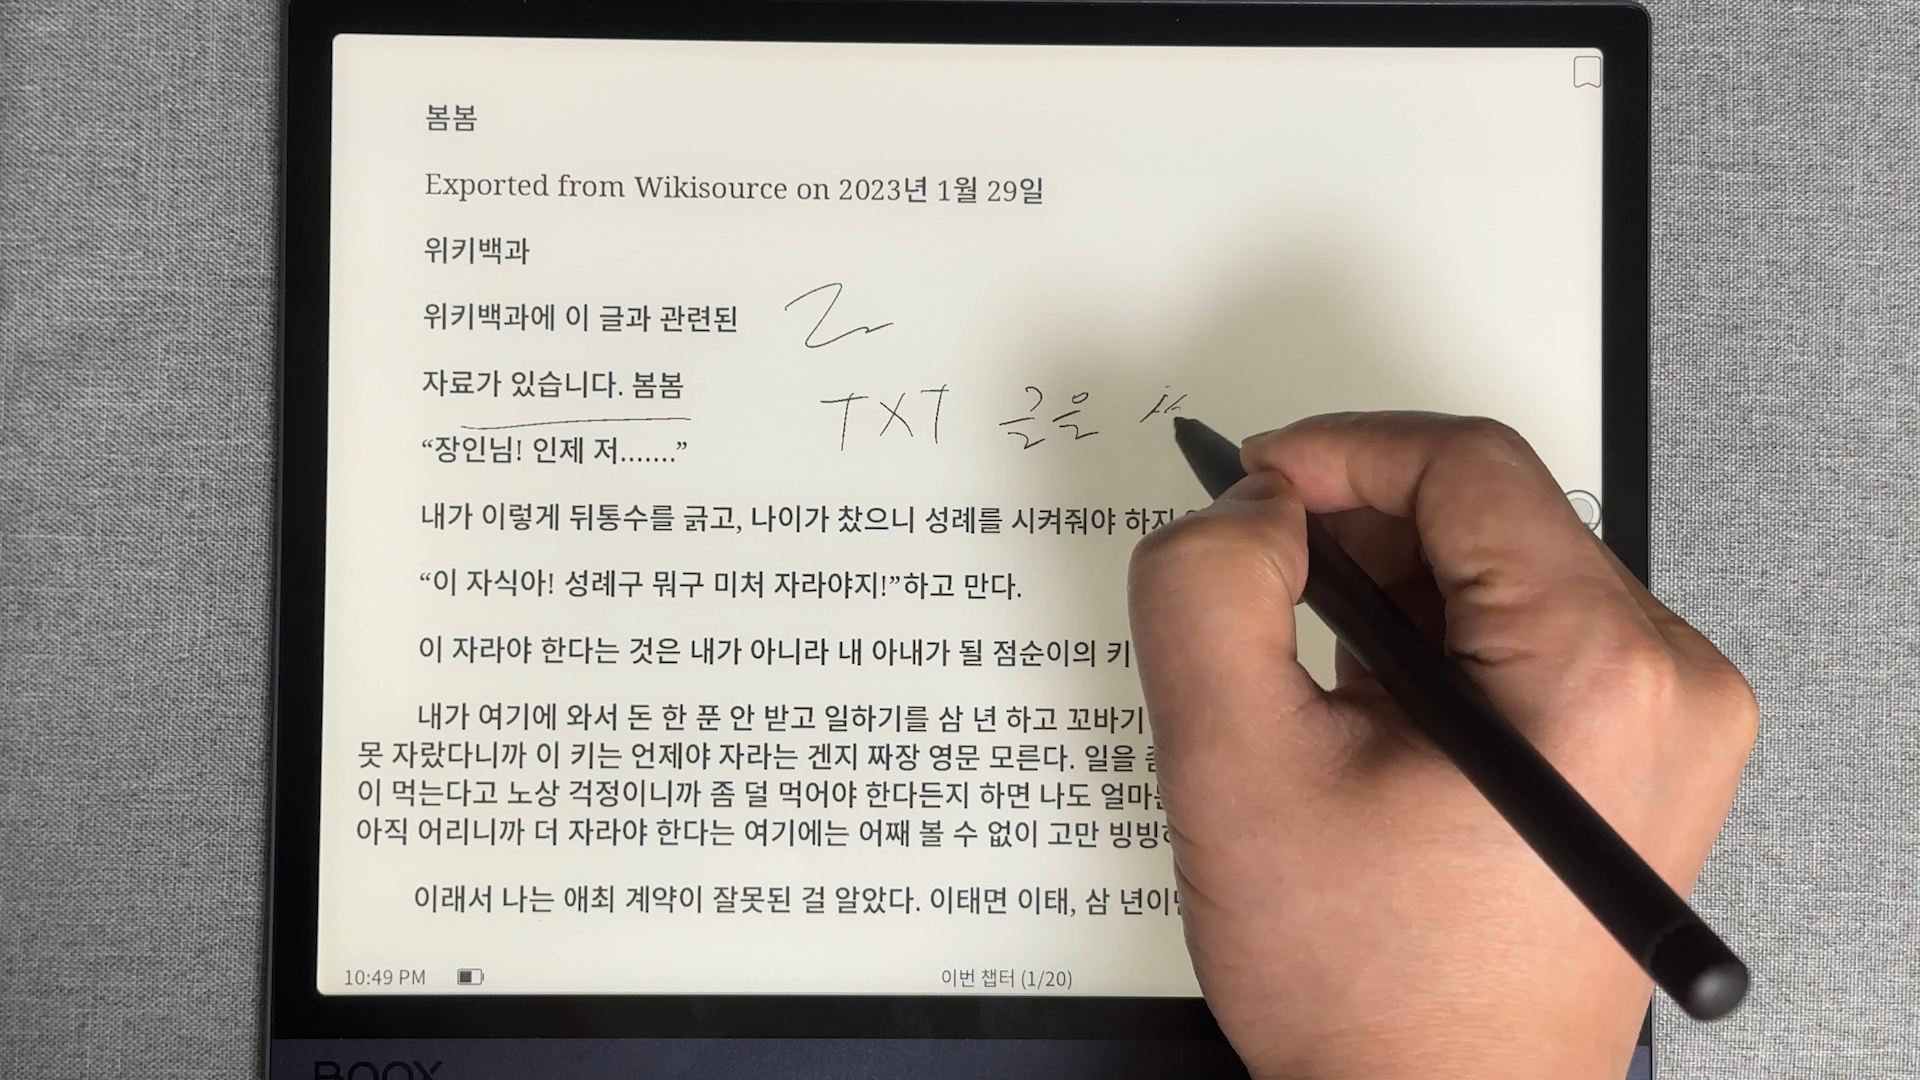 봄봄
Exported from Wikisource on 2023년 1월 29일
위키백과
위키백과에 이 글과 관련된
자료가 있습니다. 봄봄
TXT 글을
“장인님! 인제 저.......”
내가 이렇게 뒤통수를 긁고, 나이가 찼으니 성례를 시켜줘야 하지
“이 자식아! 성례구 뭐구 미처 자라야지!”하고 만다.
이 자라야 한다는 것은 내가 아니라 내 아내가 될 점순이의 키
내가 여기에 와서 돈 한 푼 안 받고 일하기를 삼 년 하고 꼬바기
못 자랐다니까 이 키는 언제야 자라는 겐지 짜장 영문 모른다. 일을
이 먹는다고 노상 걱정이니까 좀 덜 먹어야 한다든지 하면 나도
아직 어리니까 더 자라야 한다는 여기에는 어째 볼 수 없이 고만
이래서 나는 애최 계약이 잘못된 걸 알았다. 이태면 이태, 삼
10:49 PM 이번 챕터 (1/20)
BOOX